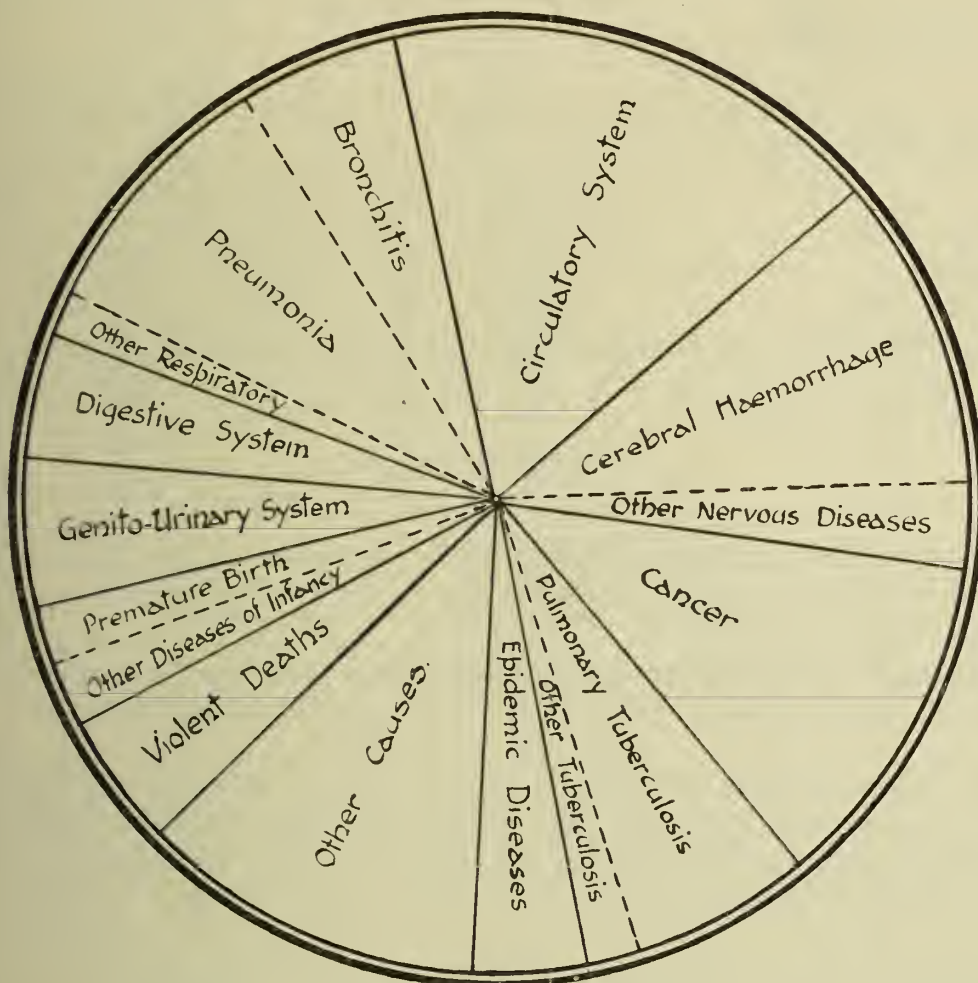 Circulatory System
Cerebral Haemorrhage
Other Nervous Diseases
Cancer
Pulmonary Tuberculosis
Other Tuberculosis
Epidemic Diseases
Other Causes.
Violent Deaths
Other Diseases of Infancy
Premature Birth
Genito-Urinary System
Digestive System
Other Respiratory
Pneumonia
Bronchitis